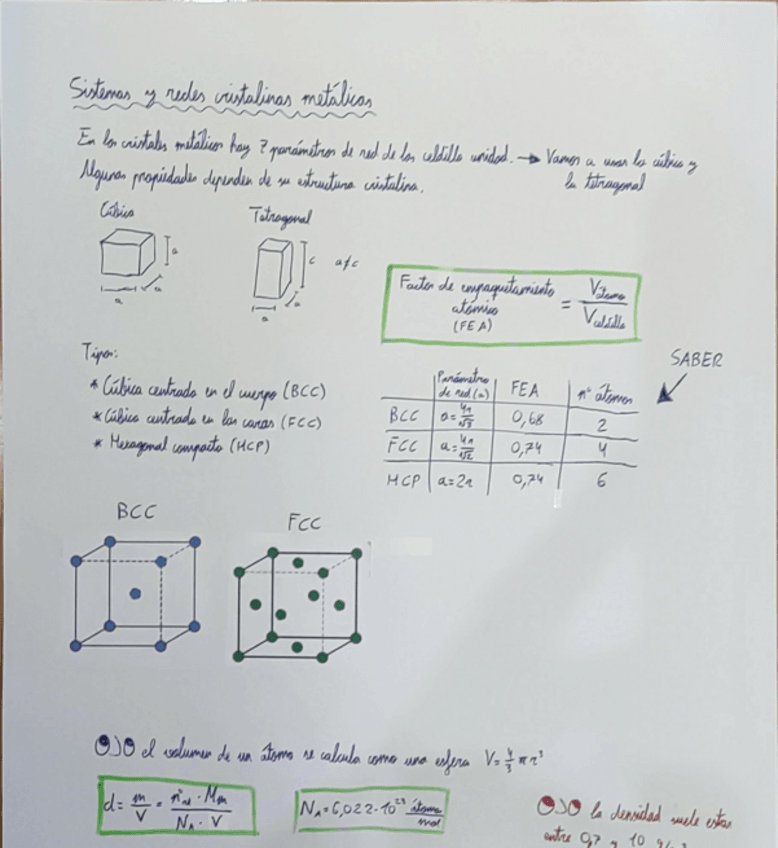 Sistemas y redes cristalinas metálicas
En los cristales metálicos hay 7 parámetros de red de las celdilla unidad. → Vamos a usar la cúbica y
la tetragonal
Algunas propiedades dependen de su estructura cristalina.
Cúbica
Tetragonal
a
a
a
c
a≠c
a
a
Factor de empaquetamiento atómico (FEA) = Vátomos / Vceldilla
Tipos:
* Cúbica centrada en el cuerpo (BCC)
* Cúbica centrada en las caras (FCC)
* Hexagonal compacto (HCP)
SABER
Parámetro de red (a) FEA nº átomos
BCC a=4r/√3 0,68 2
FCC a=4r/√2 0,74 4
HCP a=2r 0,74 6
BCC
FCC
OJO el volumen de un átomo se calcula como una esfera V=4/3 π r³
d= m/V = nºat · Mm / NA · V
NA=6,022·10²³ átomos/mol
OJO la densidad suele estar
entre 0,7 y 10